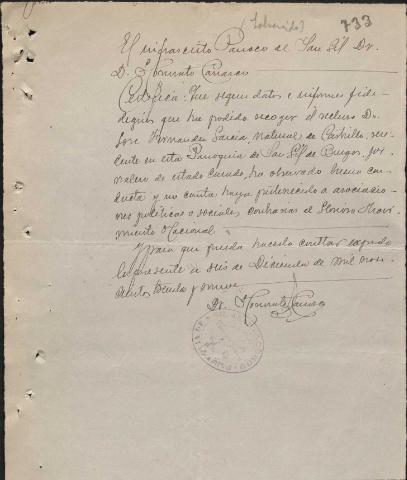 733
El infrascrito Párroco de San Gil Dr.
D. Honorato
Certifica: Que según datos e informes fide-
dignos que ha podido recoger el recluso Dn.
José Hernando García, natural de Castrillo, resi-
dente en esta Parroquia de San Gil de Burgos, jor-
nalero de estado casado, ha observado buena con-
ducta y no consta haya pertenecido a asociacio-
nes políticas o sociales, contrarias al Glorioso Movi-
miento Nacional.
Y para que pueda hacerlo constar expido
la presente a seis de Diciembre de mil nove-
cientos treinta y nueve
Dr. Honorato